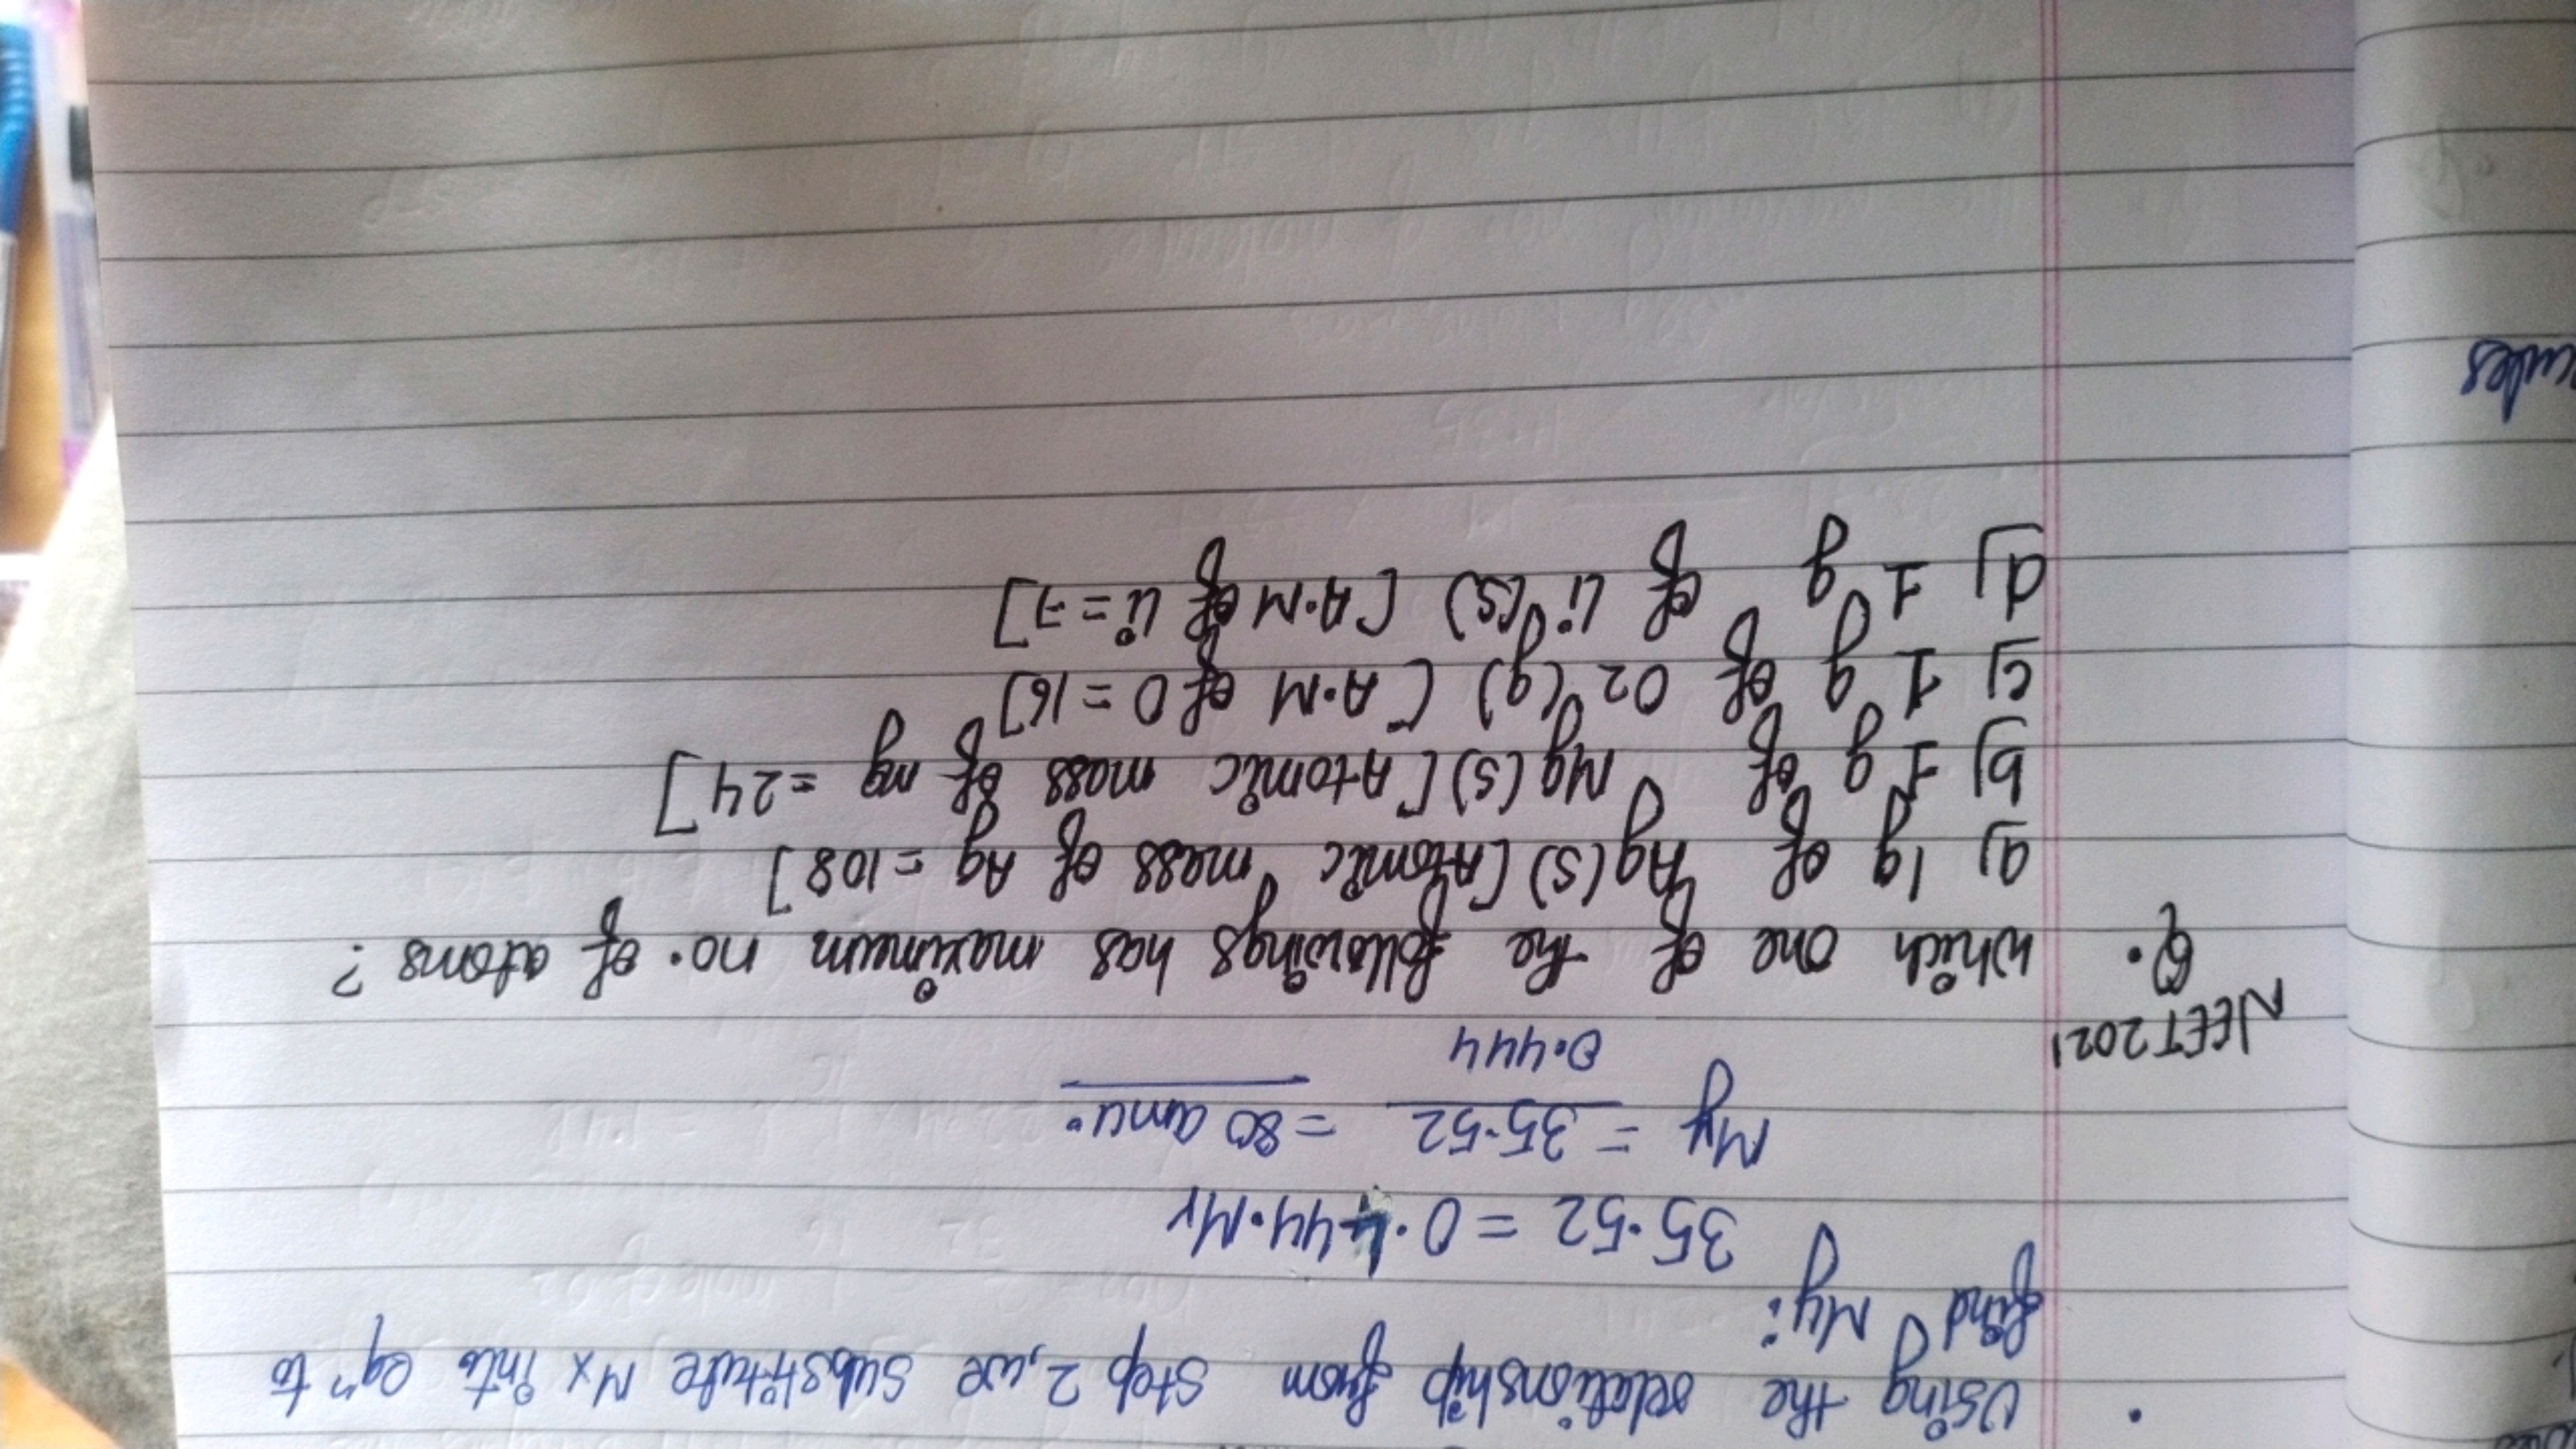 • Using the relationship from step 2, we substitute Mx into eqn to
find My:
35.52 = 0.444.My
My = 35.52 = 80 amu.
0.444
NEET 2021
Q. which one of the followings has maximum no. of atoms?
a) 1g of Ag(s) [Atomic mass of Ag = 108]
b) 1 g of Mg(s) [Atomic mass of mg = 24]
c) 1 g of O2(g) [A.M of O = 16]
d) 1 g of Li(s) [A.M of Li = 7]